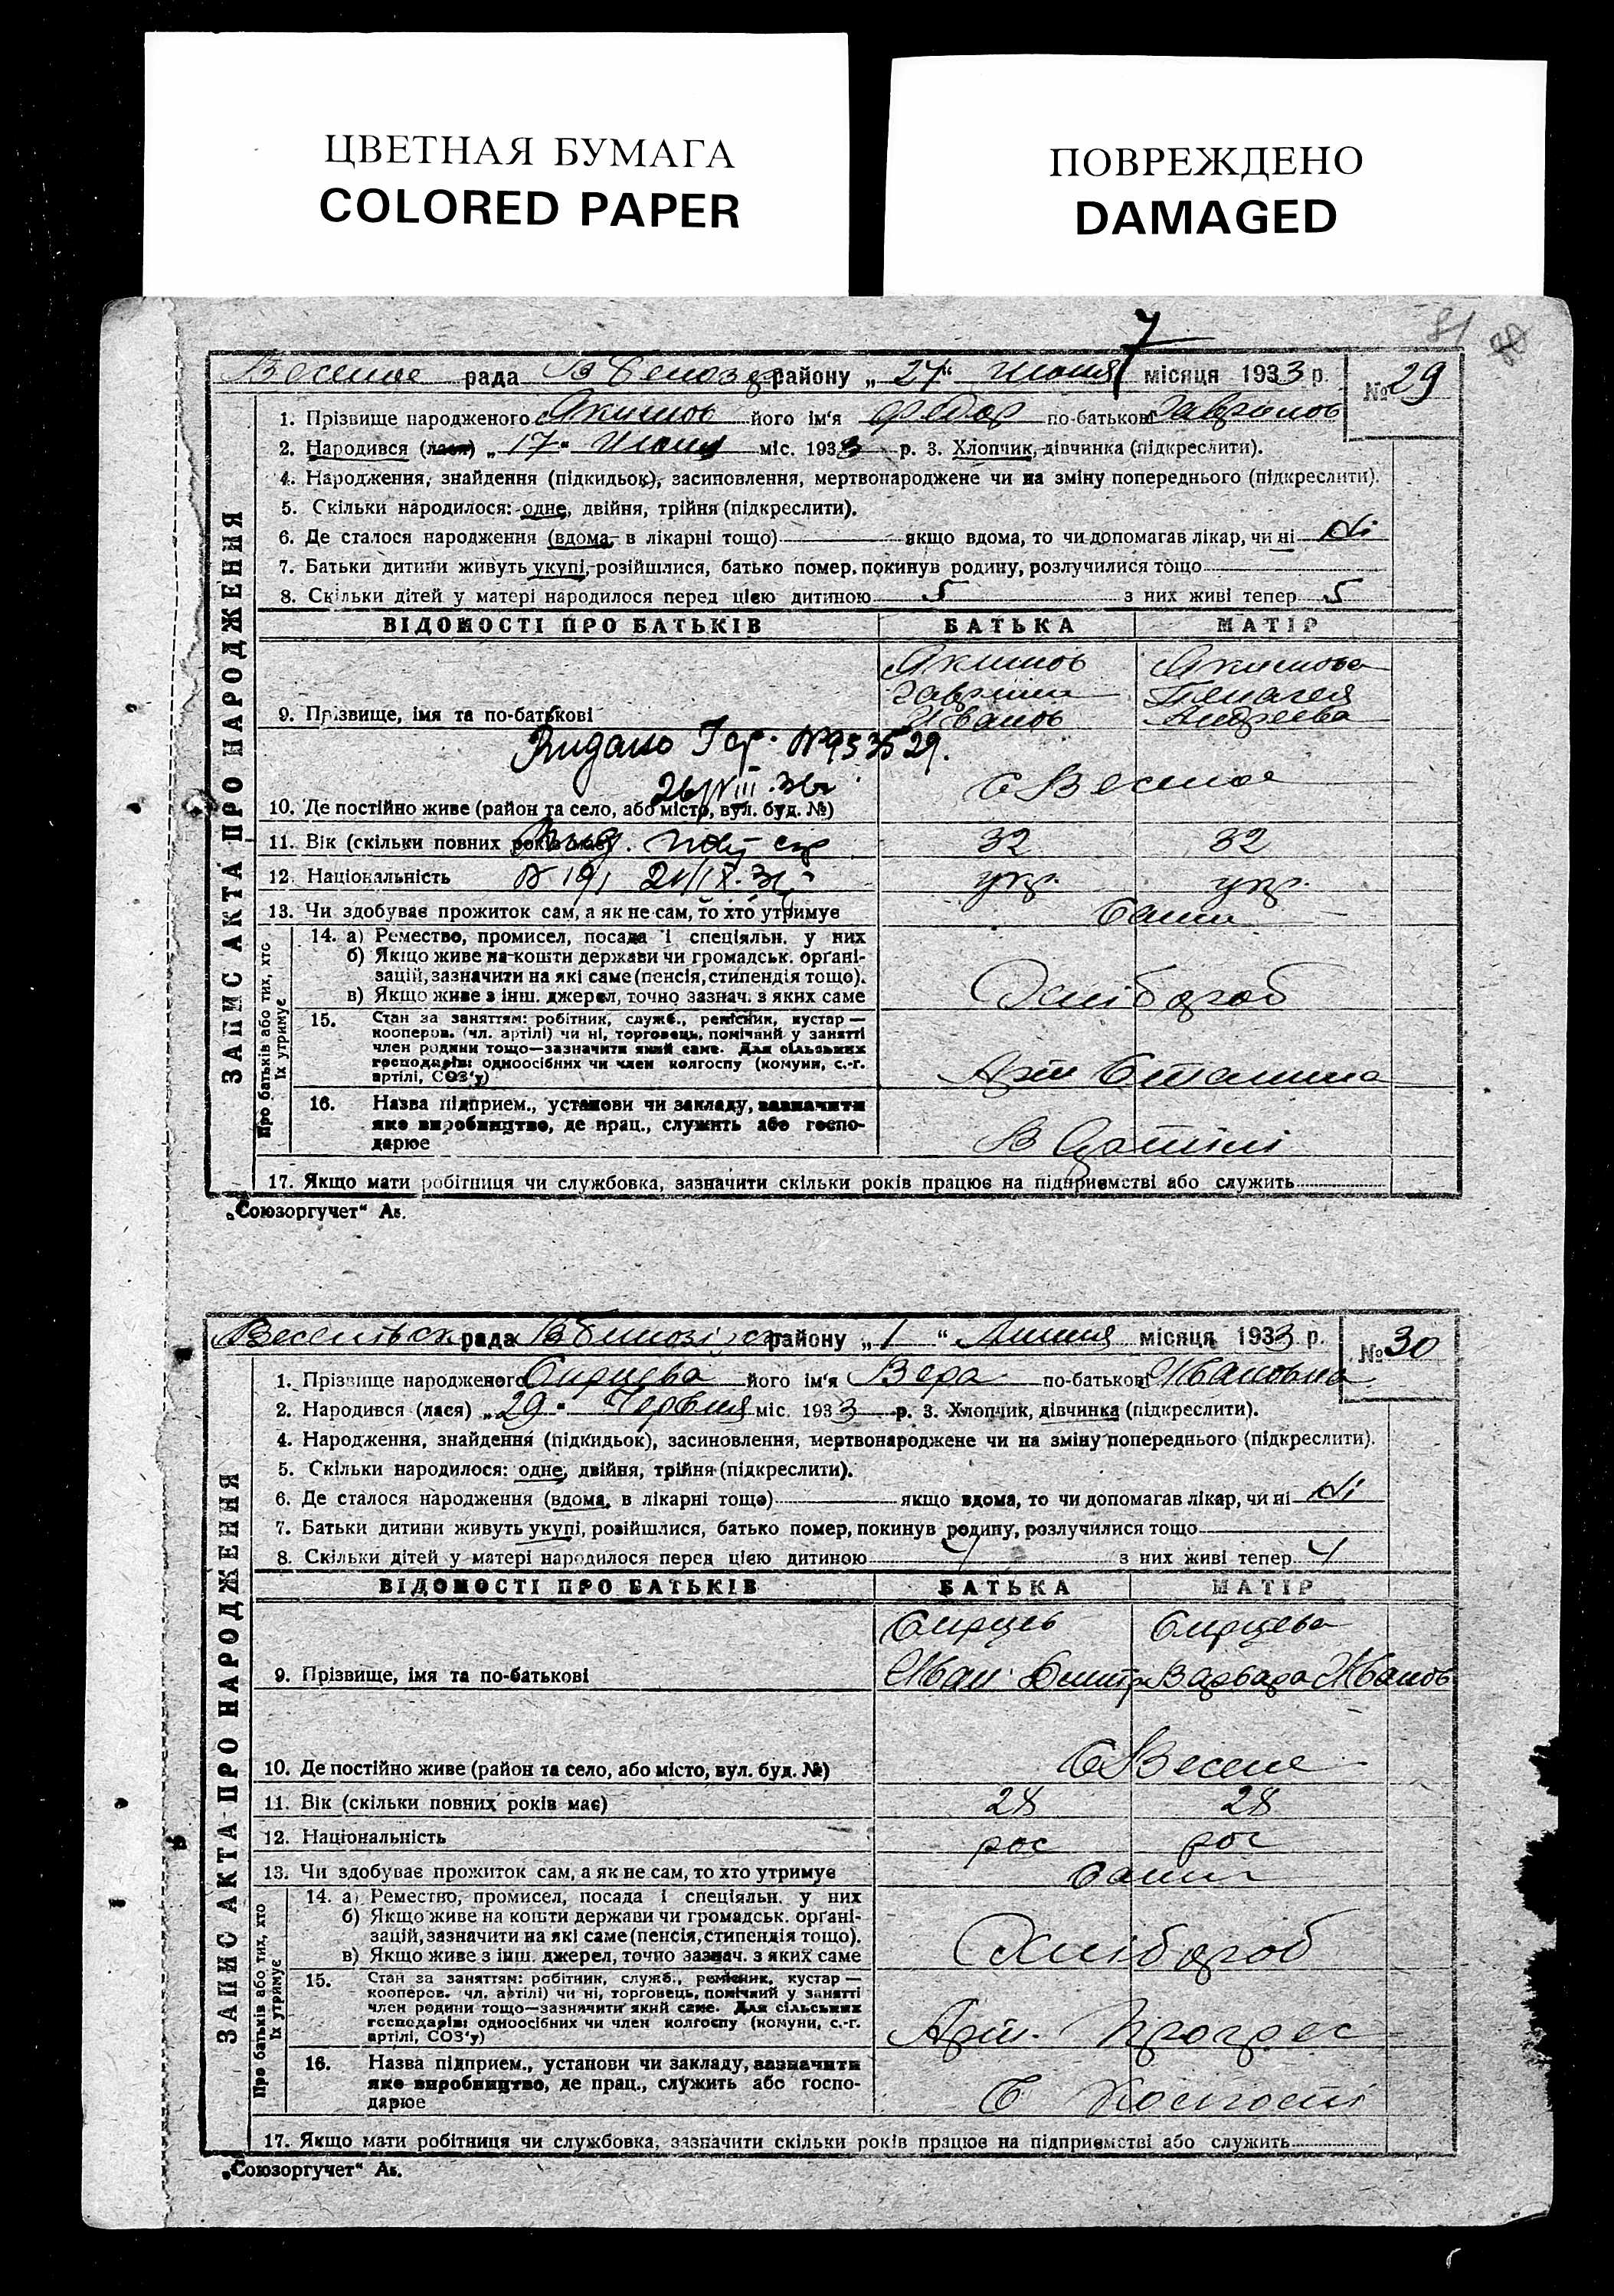 ЦВЕТНАЯ БУМАГА
COLORED PAPER
ПОВРЕЖДЕНО
DAMAGED
7
81
Веселое рада району „27“ июня місяця 1933 р. № 29
ЗАПИС АКТА ПРО НАРОДЖЕННЯ
1. Прізвище народженого Якимов його ім'я Федор по-батькові Гаврилов
2. Народився (лася) „17“ Июня міс. 1933 р. 3. Хлопчик, дівчинка (підкреслити).
4. Народження, знайдення (підкидьок), засиновлення, мертвонароджене чи на зміну попереднього (підкреслити).
5. Скільки народилося: одне, двійня, трійня (підкреслити).
6. Де сталося народження (вдома, в лікарні тощо) якщо вдома, то чи допомагав лікар, чи ні Ні
7. Батьки дитини живуть укупі, розійшлися, батько помер, покинув родину, розлучилися тощо
8. Скільки дітей у матері народилося перед цією дитиною 5 з них живі тепер 5
ВІДОМОСТІ ПРО БАТЬКІВ БАТЬКА МАТІР
Якимов Якимова
Гаврил Пелагея
9. Прізвище, імя та по-батькові Иванов Андреева
Видано
с Веселое
10. Де постійно живе (район та село, або місто, вул. буд. №)
11. Вік (скільки повних років має) 32 32
12. Національність укр. укр.
13. Чи здобуває прожиток сам, а як не сам, то хто утримує сами
Про батьків або тих, хто їх утримує
14. а) Ремество, промисел, посада і спеціяльн. у них
б) Якщо живе на кошти держави чи громадськ. органі-
зацій, зазначити на які саме (пенсія, стипендія тощо).
в) Якщо живе з інш. джерел, точно зазнач. з яких саме
Хлібороб
15. Стан за заняттям: робітник, служб., ремісник, кустар —
кооперов. (чл. артілі) чи ні, торговець, помічний у занятті
член родини тощо—зазначити який саме. Для сільських
господарів: одноосібних чи член колгоспу (комуни, с.-г.
артілі, СОЗ'у)
Арт Сталина
16. Назва підприєм., установи чи закладу, зазначити
яке виробництво, де прац., служить або госпо-
дарює
В Артілі
17. Якщо мати робітниця чи службовка, зазначити скільки років працює на підприємстві або служить
„Союзоргучет“ Ав.
Весельськ рада району „1“ Липня місяця 1933 р. № 30
ЗАПИС АКТА ПРО НАРОДЖЕННЯ
1. Прізвище народженого Сирцева його ім'я Вера по-батькові Ивановна
2. Народився (лася) „29“ Червня міс. 1933 р. 3. Хлопчик, дівчинка (підкреслити).
4. Народження, знайдення (підкидьок), засиновлення, мертвонароджене чи на зміну попереднього (підкреслити).
5. Скільки народилося: одне, двійня, трійня (підкреслити).
6. Де сталося народження (вдома, в лікарні тощо) якщо вдома, то чи допомагав лікар, чи ні Ні
7. Батьки дитини живуть укупі, розійшлися, батько помер, покинув родину, розлучилися тощо
8. Скільки дітей у матері народилося перед цією дитиною 4 з них живі тепер 4
ВІДОМОСТІ ПРО БАТЬКІВ БАТЬКА МАТІР
Сирцев Сирцева
9. Прізвище, імя та по-батькові Иван Дмитр Варвара Иванов
с Веселе
10. Де постійно живе (район та село, або місто, вул. буд. №)
11. Вік (скільки повних років має) 28 28
12. Національність рос рос
13. Чи здобуває прожиток сам, а як не сам, то хто утримує сами
Про батьків або тих, хто їх утримує
14. а) Ремество, промисел, посада і спеціяльн. у них
б) Якщо живе на кошти держави чи громадськ. органі-
зацій, зазначити на які саме (пенсія, стипендія тощо).
в) Якщо живе з інш. джерел, точно зазнач. з яких саме
Хлібороб
15. Стан за заняттям: робітник, служб., ремісник, кустар —
кооперов. чл. артілі) чи ні, торговець, помічний у занятті
член родини тощо—зазначити який саме. Для сільських
господарів: одноосібних чи член колгоспу (комуни, с.-г.
артілі, СОЗ'у)
Арт. Прогрес
16. Назва підприєм., установи чи закладу, зазначити
яке виробництво, де прац., служить або госпо-
дарює
17. Якщо мати робітниця чи службовка, зазначити скільки років працює на підприємстві або служить
„Союзоргучет“ Ав.